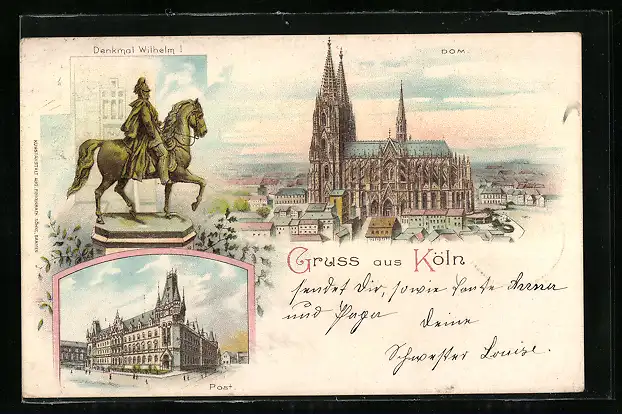 Denkmal Wilhelm I
DOM.
Gruss aus Köln
sendet Dir, sowie Tante Anna
und Papa
Deine
Schwester Louise.
Post.